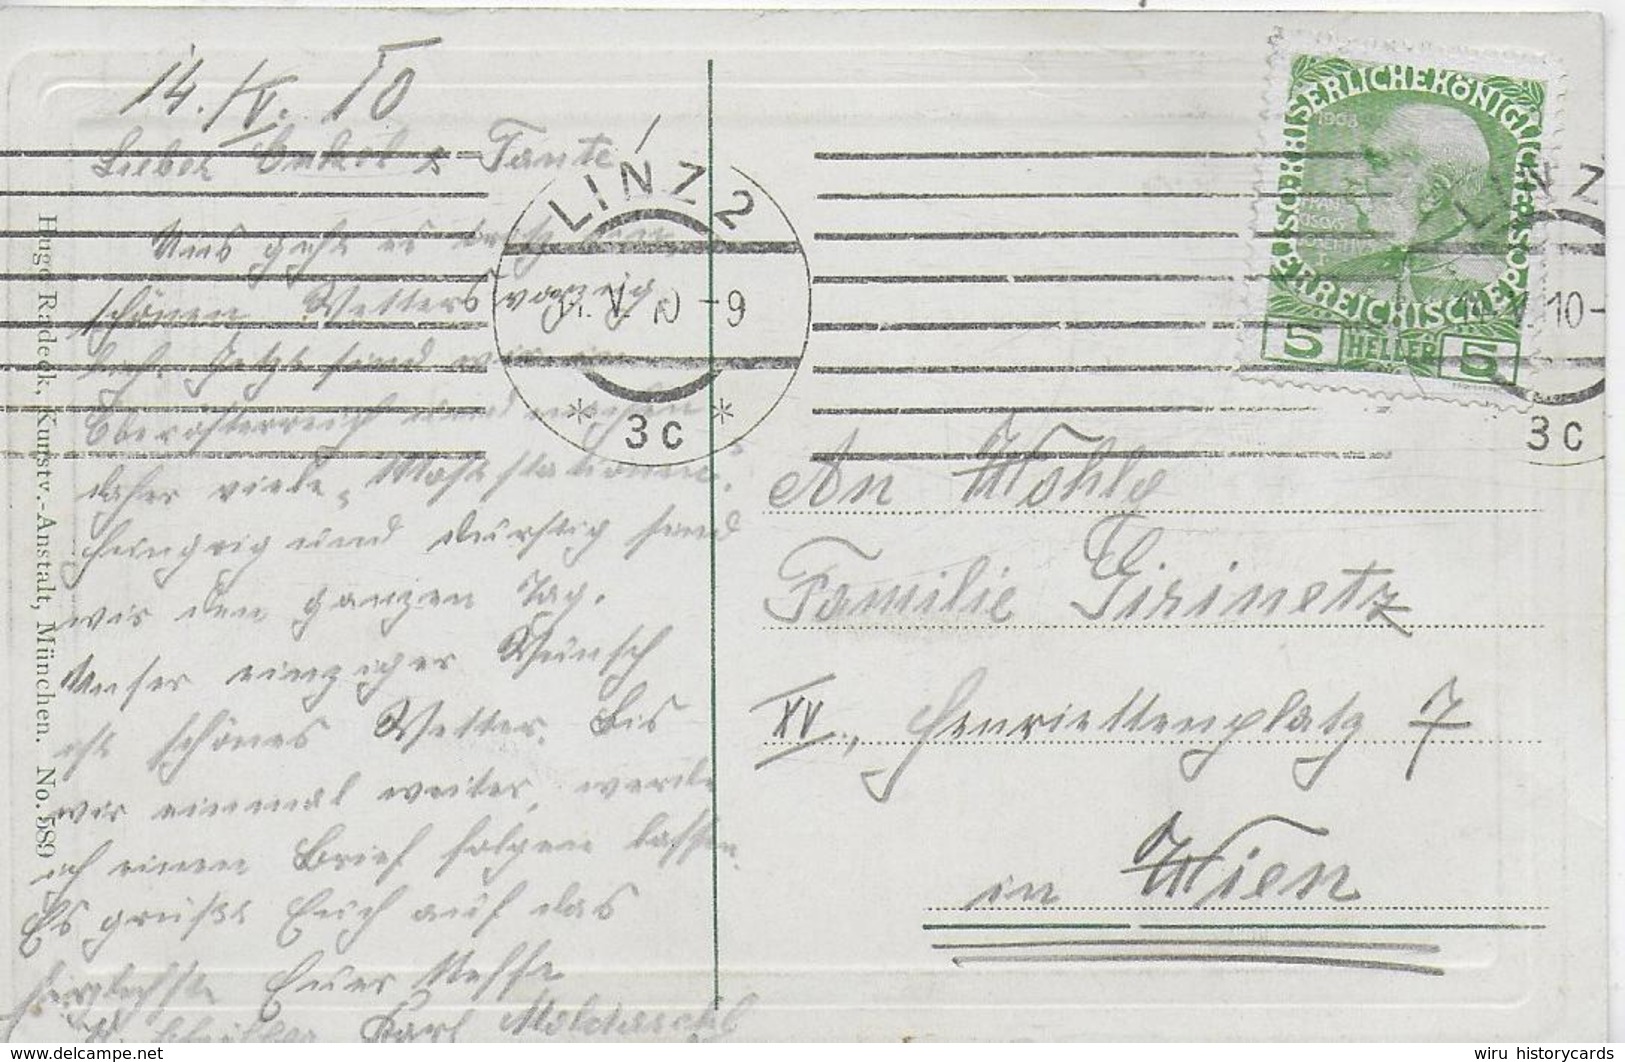 14. IV. 10
Lieber Onkel & Tante!
Uns geht es trotz
schönen Wetters
Jetzt sind wir in
Oberösterreich und machen
daher viele „Moststationen“.
Hungrig und durstig sind
wir den ganzen Tag.
Unser einziger Wunsch
ist schönes Wetter. Bis
wir einmal weiter, werde
ich einen Brief folgen lassen.
Es grüßt Euch auf das
herzlichste Euer Neffe
Karl
Hugo Radeck, Kunstv.-Anstalt, München. No. 589
LINZ 2
10 -9
* 3c *
KAISERLICHEKÖNIGLICHE ÖSTERREICHISCHE POST
1908
5 HELLER 5
LINZ
10-
3c
An Wohlg
Familie Girinetz
XV., Henriettenplatz 7
in Wien
wiru historycards